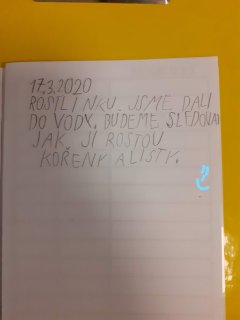 17.3.2020
ROSTLINKU JSME DALI
DO VODY, BUDEME SLEDOVAT
JAK JÍ ROSTOU
KOŘENY A LISTY.